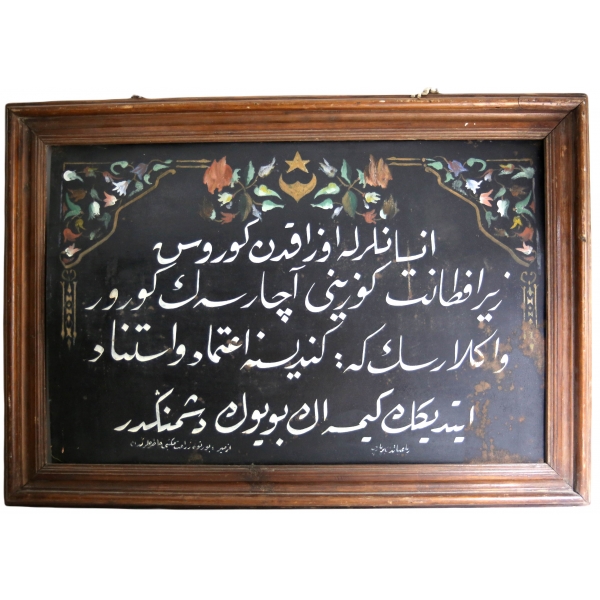 انسانلرله اوزاقدن كوروس
زيرا فطانت كوزينى آچارسه ك كورور
واكلارسك كه: كنديسنه اعتماد واستناد
ايتديكك كيمسه اك بويوك دشمنكدر